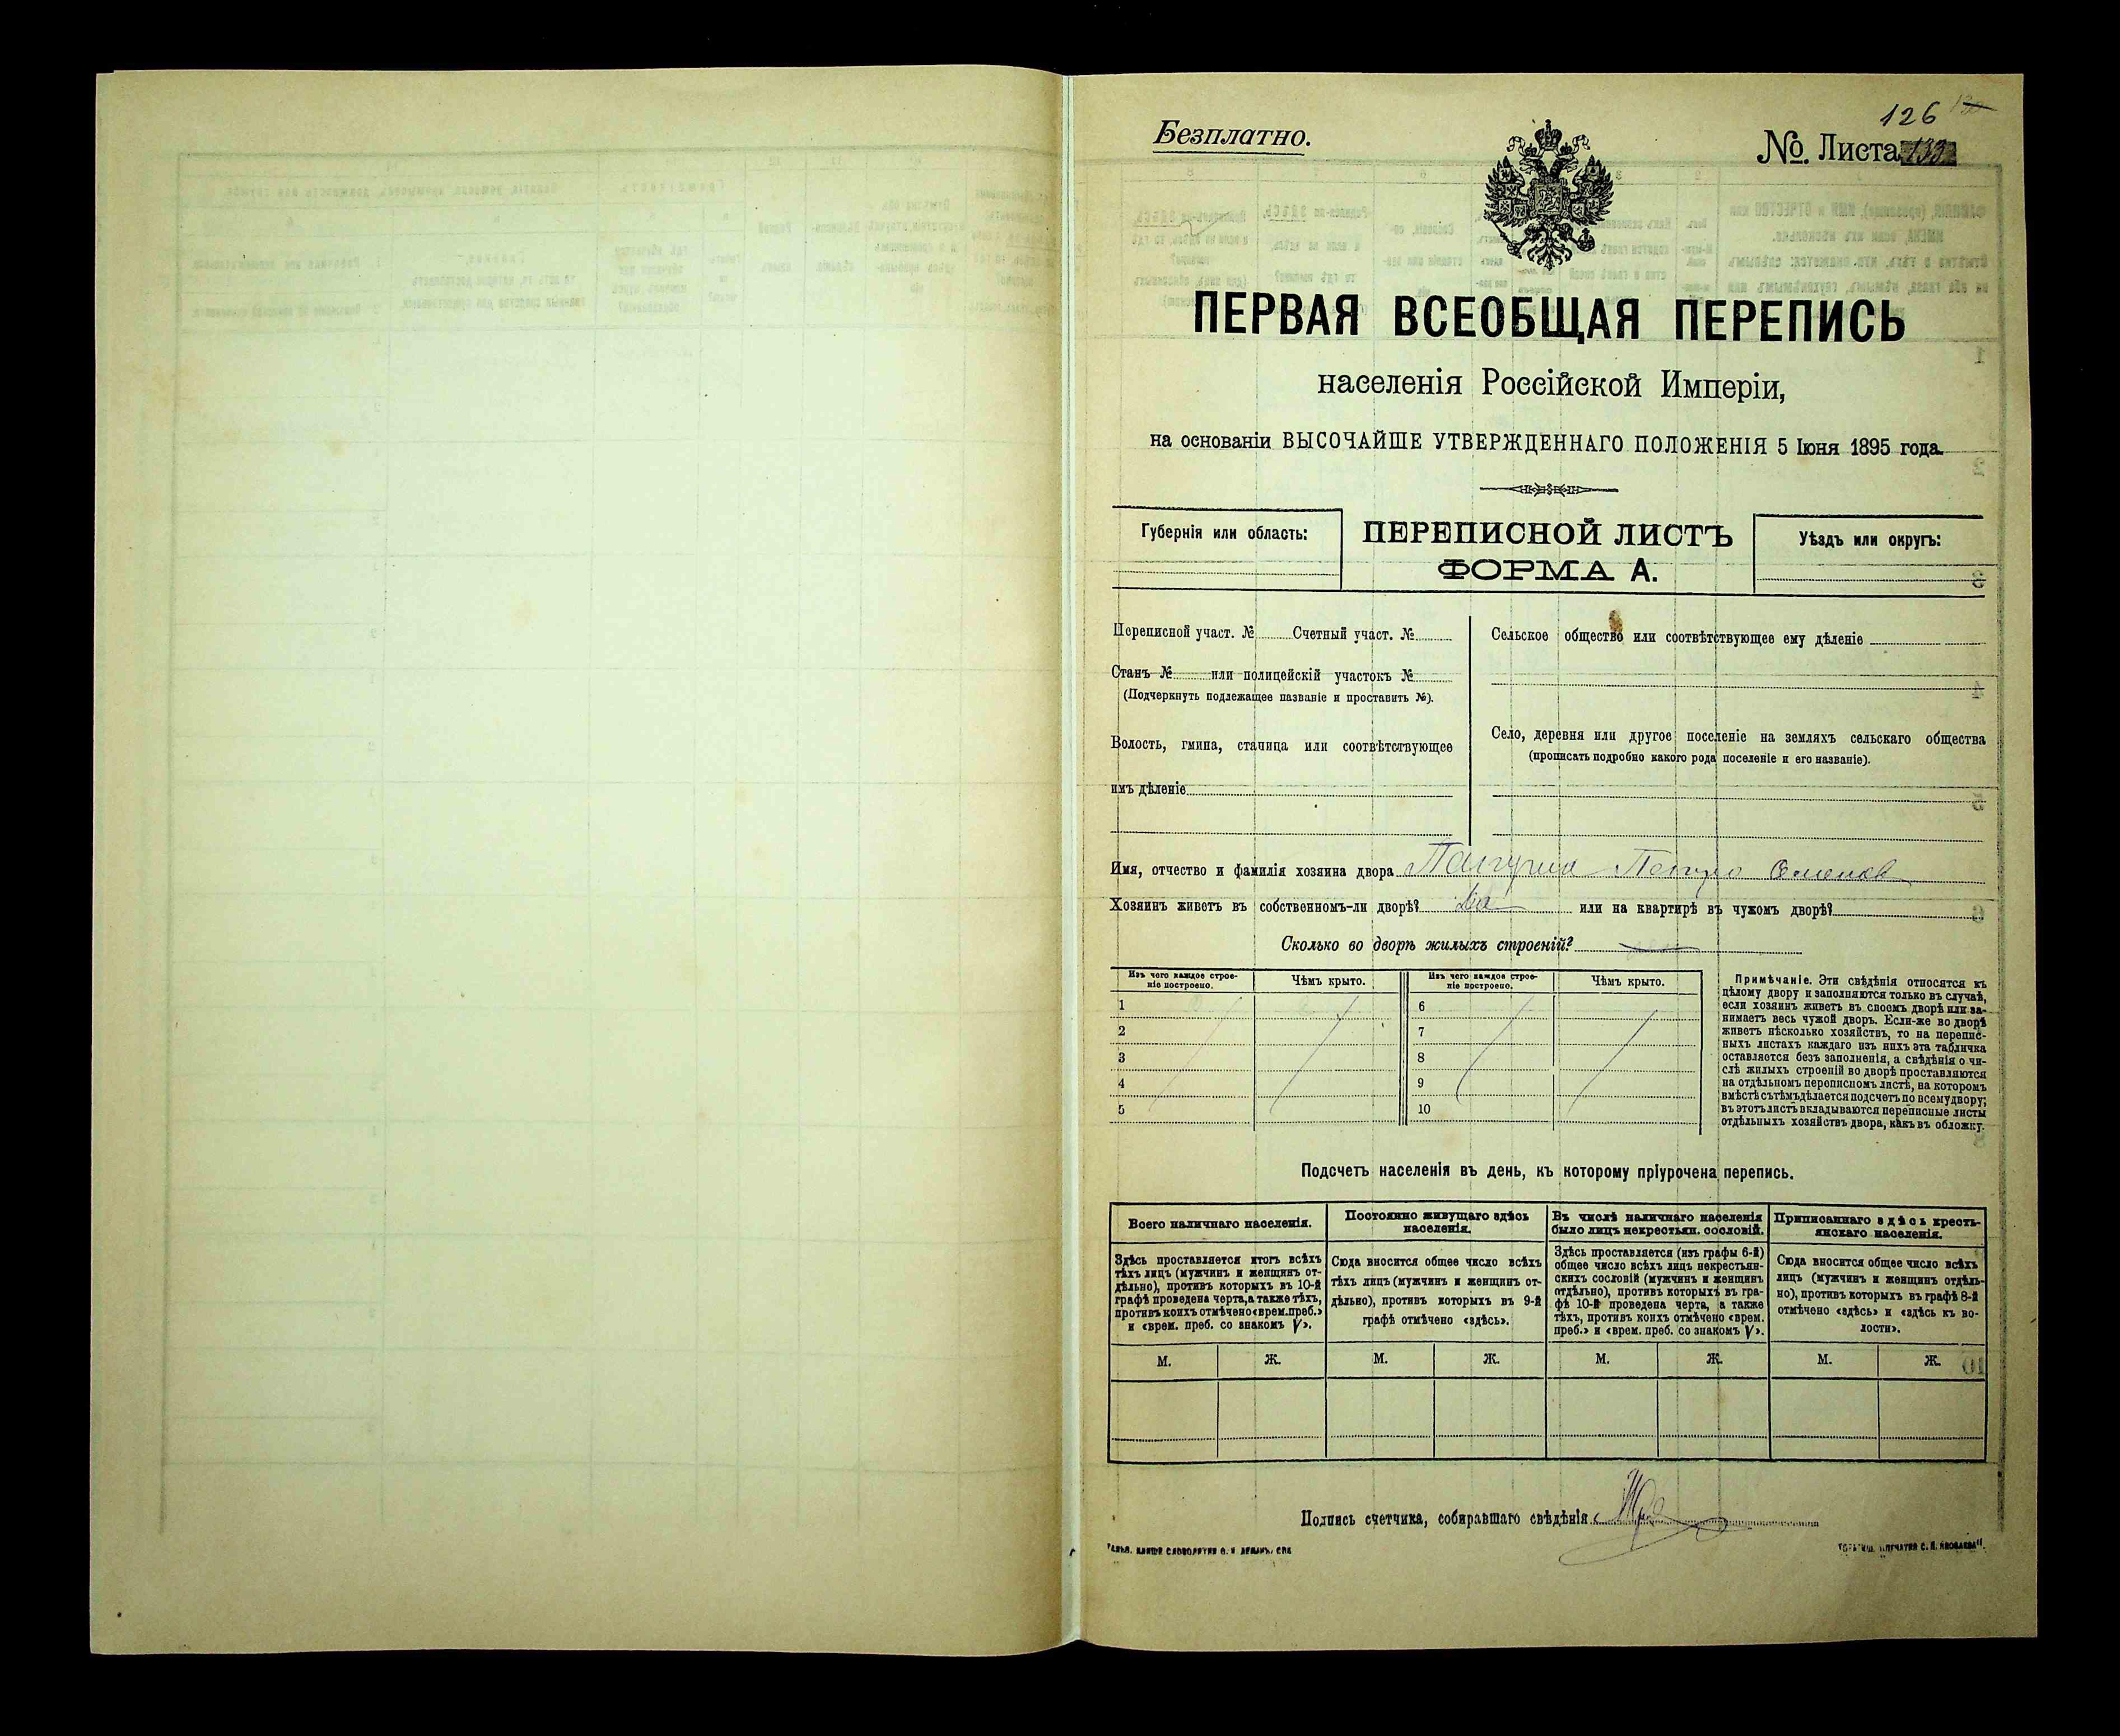 Безплатно.
126
№. Листа 133
ПЕРВАЯ ВСЕОБЩАЯ ПЕРЕПИСЬ
населенія Россійской Имперіи,
на основаніи ВЫСОЧАЙШЕ УТВЕРЖДЕННАГО ПОЛОЖЕНІЯ 5 Іюня 1895 года.
Губернія или область:
ПЕРЕПИСНОЙ ЛИСТЪ
ФОРМА А.
Уѣздъ или округъ:
Переписной участ. № Счетный участ. №
Станъ № или полицейскій участокъ №
(Подчеркнуть подлежащее названіе и проставить №).
Волость, гмина, станица или соотвѣтствующее
имъ дѣленіе
Сельское общество или соотвѣтствующее ему дѣленіе
Село, деревня или другое поселеніе на земляхъ сельскаго общества
(прописать подробно какого рода поселеніе и его названіе).
Имя, отчество и фамилія хозяина двора
Хозяинъ живетъ въ собственномъ-ли дворѣ? да или на квартирѣ въ чужомъ дворѣ?
Сколько во дворѣ жилыхъ строеній?
Изъ чего каждое строе-
ніе построено.
Чѣмъ крыто.
Изъ чего каждое строе-
ніе построено.
Чѣмъ крыто.
1 6
2 7
3 8
4 9
5 10
Примѣчаніе. Эти свѣдѣнія относятся къ
цѣлому двору и заполняются только въ случаѣ,
если хозяинъ живетъ въ своемъ дворѣ или за-
нимаетъ весь чужой дворъ. Если-же во дворѣ
живетъ нѣсколько хозяйствъ, то на перепис-
ныхъ листахъ каждаго изъ нихъ эта табличка
оставляется безъ заполненія, а свѣдѣнія о чи-
слѣ жилыхъ строеній во дворѣ проставляются
на отдѣльномъ переписномъ листѣ, на которомъ
вмѣстѣ съ тѣмъ дѣлается подсчетъ по всему двору;
въ этотъ листъ вкладываются переписные листы
отдѣльныхъ хозяйствъ двора, какъ въ обложку.
Подсчетъ населенія въ день, къ которому пріурочена перепись.
Всего наличнаго населенія.
Здѣсь проставляется итогъ всѣхъ
тѣхъ лицъ (мужчинъ и женщинъ от-
дѣльно), противъ которыхъ въ 10-й
графѣ проведена черта, а также тѣхъ,
противъ коихъ отмѣчено «врем. преб.»
и «врем. преб. со знакомъ V».
Постоянно живущаго здѣсь
населенія.
Сюда вносится общее число всѣхъ
тѣхъ лицъ (мужчинъ и женщинъ от-
дѣльно), противъ которыхъ въ 9-й
графѣ отмѣчено «здѣсь».
Въ числѣ наличнаго населенія
было лицъ некрестьян. сословій.
Здѣсь проставляется (изъ графы 6-й)
общее число всѣхъ лицъ некрестьян-
скихъ сословій (мужчинъ и женщинъ
отдѣльно), противъ которыхъ въ гра-
фѣ 10-й проведена черта, а также
тѣхъ, противъ коихъ отмѣчено «врем.
преб.» и «врем. преб. со знакомъ V».
Приписаннаго здѣсь кресть-
янскаго населенія.
Сюда вносится общее число всѣхъ
лицъ (мужчинъ и женщинъ отдѣль-
но), противъ которыхъ въ графѣ 8-й
отмѣчено «здѣсь» и «здѣсь къ во-
лости».
М. Ж. М. Ж. М. Ж. М. Ж.
Подпись счетчика, собиравшаго свѣдѣнія